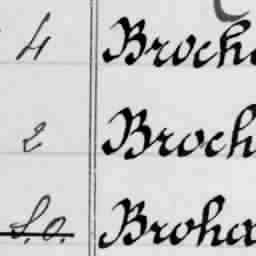 4 Broche
2 Broch
S.O. Broha